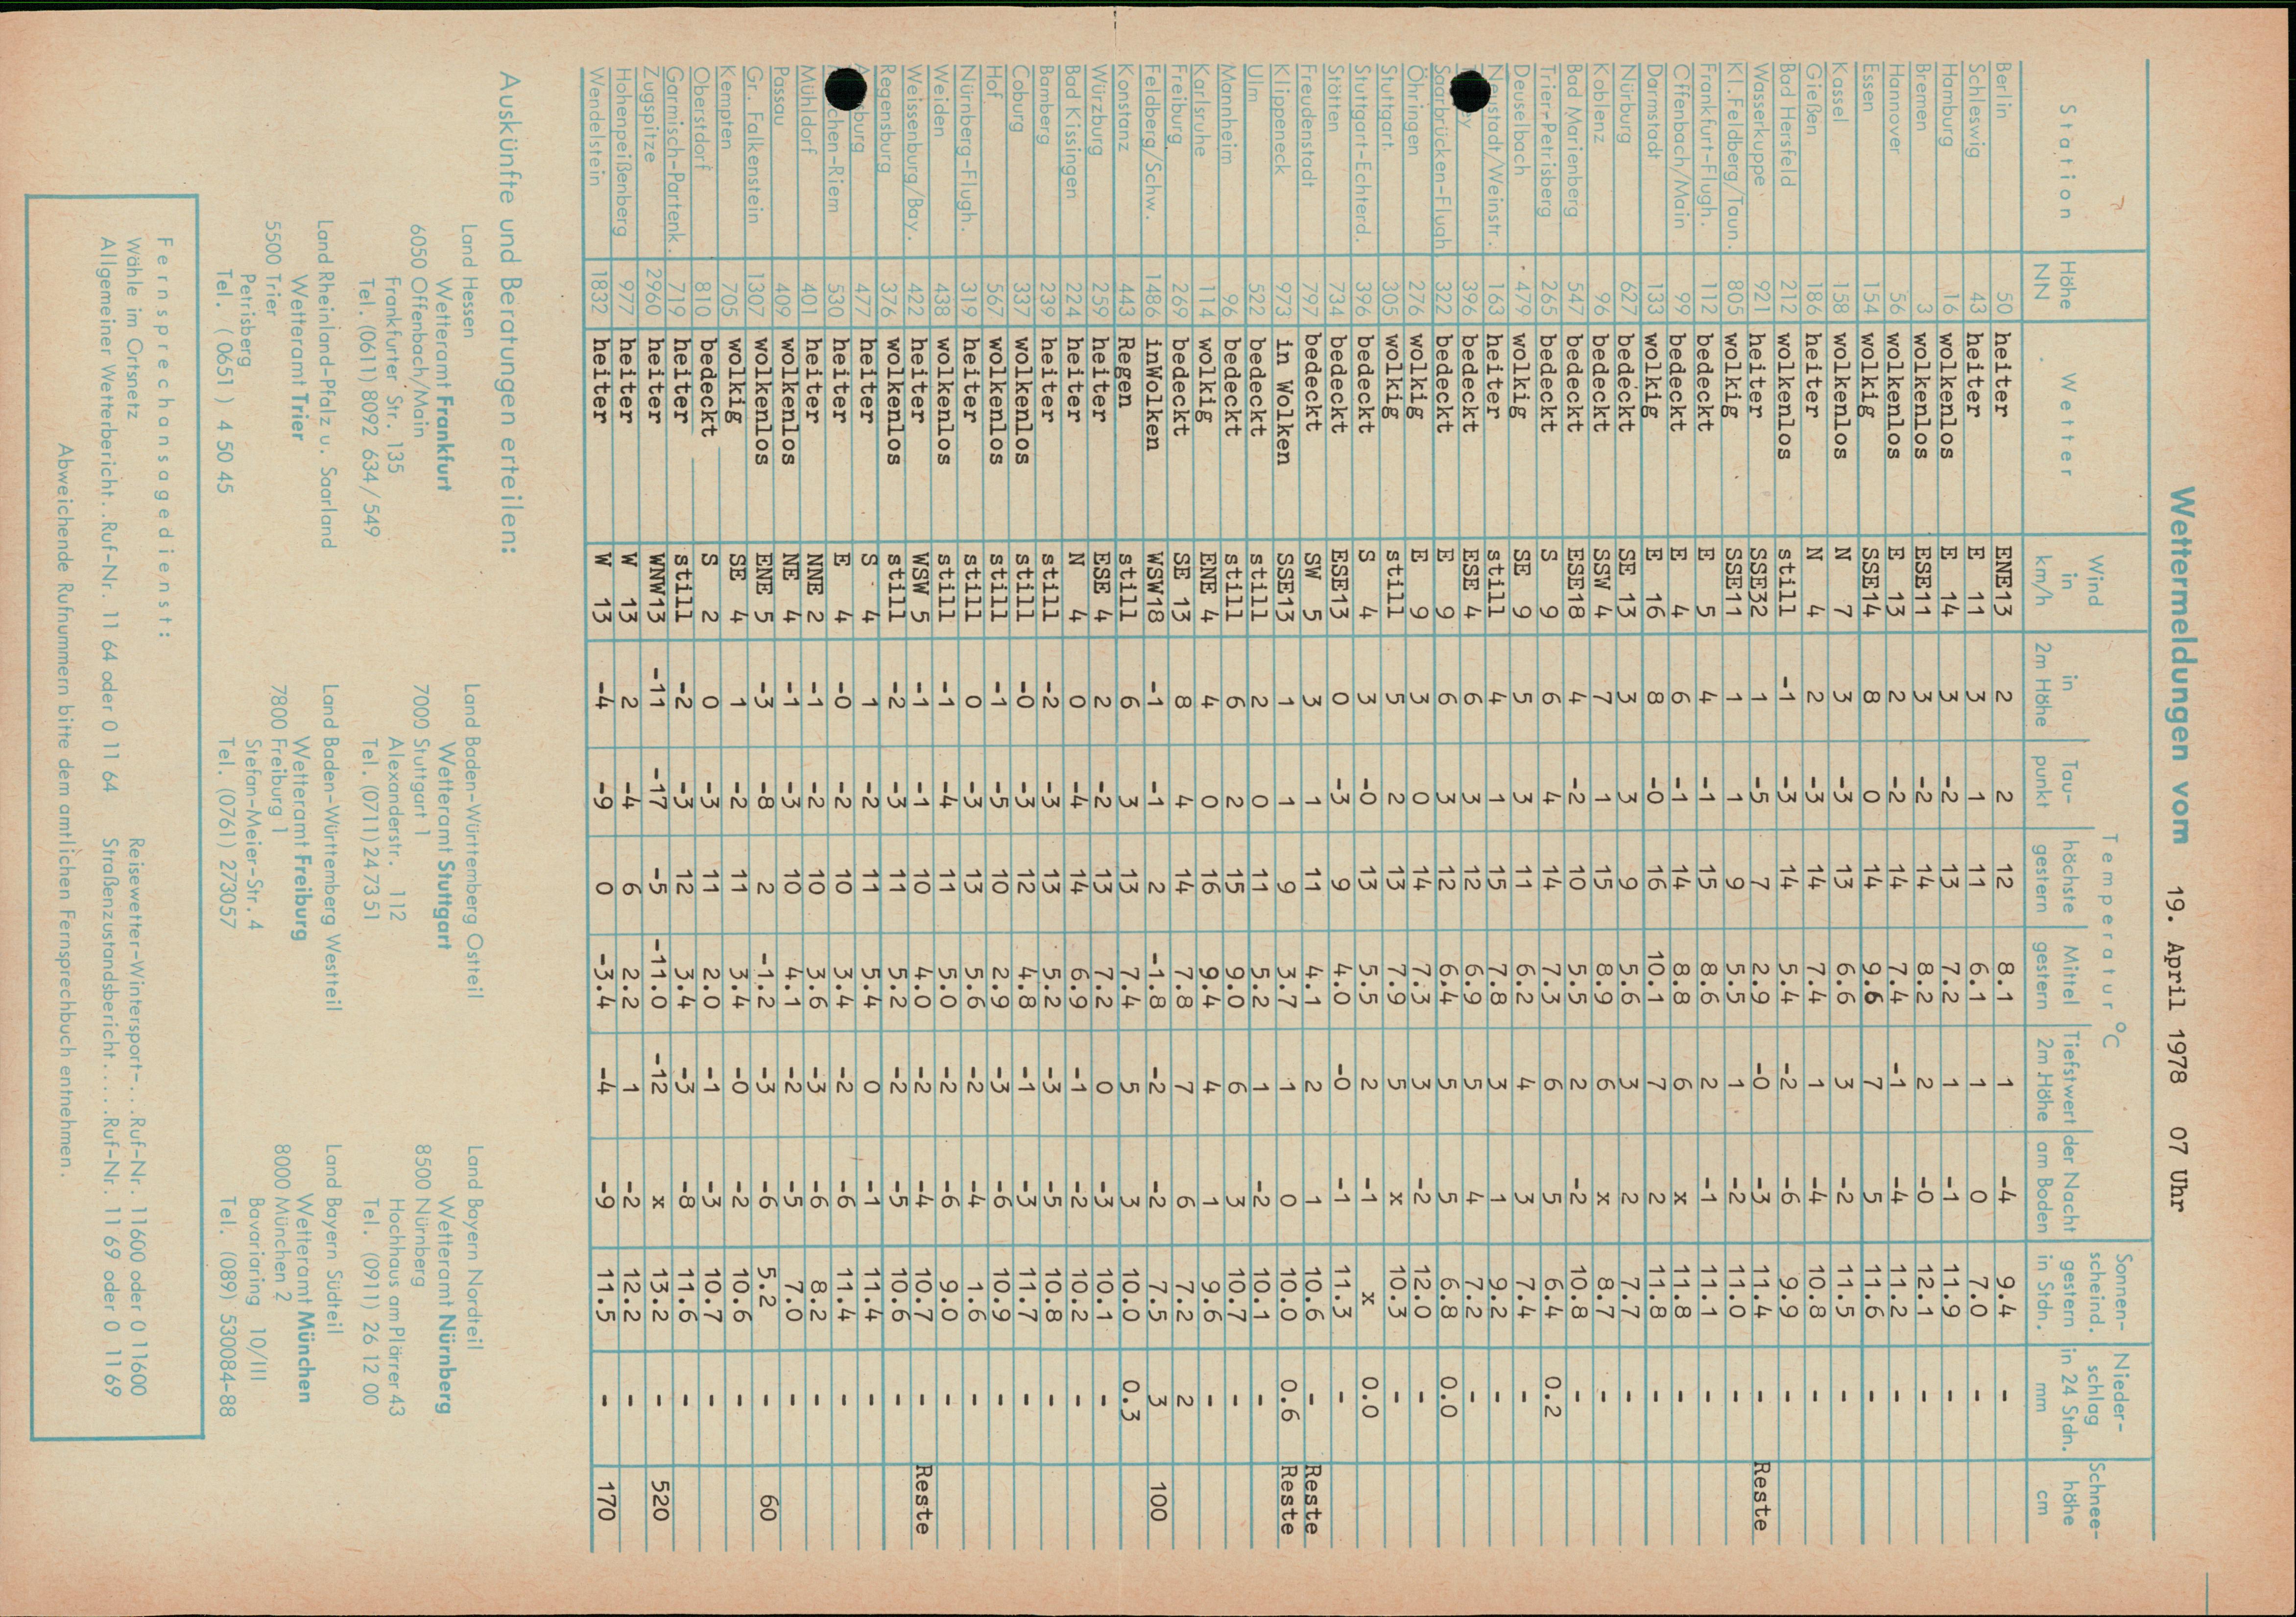 Wettermeldungen vom 19. April 1978 07 Uhr
Station Höhe NN Wetter Wind in km/h Temperatur °C in 2m Höhe Tau-punkt höchste gestern Mittel gestern Tiefstwert der Nacht 2m Höhe am Boden Sonnen-scheind. gestern in Stdn. Nieder-schlag in 24 Stdn. mm Schnee-höhe cm
Berlin 50 heiter ENE13 2 2 12 8.1 1 -4 9.4 -
Schleswig 43 heiter E 11 3 1 11 6.1 1 0 7.0 -
Hamburg 16 wolkenlos E 14 3 -2 13 7.2 1 -1 11.9 -
Bremen 3 wolkenlos ESE11 3 -2 14 8.2 2 -0 12.1 -
Hannover 56 wolkenlos E 13 2 -2 14 7.4 -1 -4 11.2 -
Essen 154 wolkig SSE14 8 0 14 9.6 7 5 11.6 -
Kassel 158 wolkenlos N 7 3 -3 13 6.6 3 -2 11.5 -
Gießen 186 heiter N 4 2 -3 14 7.4 1 -4 10.8 -
Bad Hersfeld 212 wolkenlos still -1 -3 14 5.4 -2 -6 9.9 -
Wasserkuppe 921 heiter SSE32 1 -5 7 2.9 -0 -3 11.4 - Reste
Kl.Feldberg/Taun. 805 wolkig SSE11 1 1 9 5.5 1 -2 11.0 -
Frankfurt-Flugh. 112 bedeckt E 5 4 -1 15 8.6 2 -1 11.1 -
Offenbach/Main 99 bedeckt E 4 6 -1 14 8.8 6 x 11.8 -
Darmstadt 133 wolkig E 16 8 -0 16 10.1 7 2 11.8 -
Nürburg 627 bedeckt SE 13 3 3 9 5.6 3 2 7.7 -
Koblenz 96 bedeckt SSW 4 7 1 15 8.9 6 x 8.7 -
Bad Marienberg 547 bedeckt ESE18 4 -2 10 5.5 2 -2 10.8 -
Trier-Petrisberg 265 bedeckt S 9 6 4 14 7.3 6 5 6.4 0.2
Deuselbach 479 wolkig SE 9 5 3 11 6.2 4 3 7.4 -
Neustadt/Weinstr. 163 heiter still 4 1 15 7.8 3 1 9.2 -
ey 396 bedeckt ESE 4 6 3 12 6.9 5 4 7.2 -
Saarbrücken-Flugh. 322 bedeckt E 9 6 3 12 6.4 5 5 6.8 0.0
Öhringen 276 wolkig E 9 3 0 14 7.3 3 -2 12.0 -
Stuttgart 305 wolkig still 5 2 13 7.9 5 x 10.3 -
Stuttgart-Echterd. 396 bedeckt S 4 3 -0 13 5.5 2 -1 x 0.0
Stötten 734 bedeckt ESE13 0 -3 9 4.0 -0 -1 11.3 -
Freudenstadt 797 bedeckt SW 5 3 1 11 4.1 2 1 10.6 - Reste
Klippeneck 973 in Wolken SSE13 1 1 9 3.7 1 0 10.0 0.6 Reste
Ulm 522 bedeckt still 2 0 11 5.2 1 -2 10.1 -
Mannheim 96 bedeckt still 6 2 15 9.0 6 3 10.7 -
Karlsruhe 114 wolkig ENE 4 4 0 16 9.4 4 1 9.6 -
Freiburg 269 bedeckt SE 13 8 4 14 7.8 7 6 7.2 2
Feldberg/Schw. 1486 inWolken WSW18 -1 -1 2 -1.8 -2 -2 7.5 3 100
Konstanz 443 Regen still 6 3 13 7.4 5 3 10.0 0.3
Würzburg 259 heiter ESE 4 2 -2 13 7.2 0 -3 10.1 -
Bad Kissingen 224 heiter N 4 0 -4 14 6.9 -1 -2 10.2 -
Bamberg 239 heiter still -2 -3 13 5.2 -3 -5 10.8 -
Coburg 337 wolkenlos still -0 -3 12 4.8 -1 -3 11.7 -
Hof 567 wolkenlos still -1 -5 10 2.9 -3 -6 10.9 -
Nürnberg-Flugh. 319 heiter still 0 -3 13 5.6 -2 -4 1.6 -
Weiden 438 wolkenlos still -1 -4 11 5.0 -2 -6 9.0 -
Weissenburg/Bay. 422 heiter WSW 5 -1 -1 10 4.0 -2 -4 10.7 - Reste
Regensburg 376 wolkenlos still -2 -3 11 5.2 -2 -5 10.6 -
burg 477 heiter S 4 1 -2 11 5.4 0 -1 11.4 -
chen-Riem 530 heiter E 4 -0 -2 10 3.4 -2 -6 11.4 -
Mühldorf 401 heiter NNE 2 -1 -2 10 3.6 -3 -6 8.2 -
Passau 409 wolkenlos NE 4 -1 -3 10 4.1 -2 -5 7.0 -
Gr. Falkenstein 1307 wolkenlos ENE 5 -3 -8 2 -1.2 -3 -6 5.2 - 60
Kempten 705 wolkig SE 4 1 -2 11 3.4 -0 -2 10.6 -
Oberstdorf 810 bedeckt S 2 0 -3 11 2.0 -1 -3 10.7 -
Garmisch-Partenk. 719 heiter still -2 -3 12 3.4 -3 -8 11.6 -
Zugspitze 2960 heiter WNW13 -11 -17 -5 -11.0 -12 x 13.2 - 520
Hohenpeißenberg 977 heiter W 13 2 -4 6 2.2 1 -2 12.2 -
Wendelstein 1832 heiter W 13 -4 -9 0 -3.4 -4 -9 11.5 - 170
Auskünfte und Beratungen erteilen:
Land Hessen
Wetteramt Frankfurt
6050 Offenbach/Main
Frankfurter Str. 135
Tel. (0611) 8092 634/549
Land Baden-Württemberg Ostteil
Wetteramt Stuttgart
7000 Stuttgart 1
Alexanderstr. 112
Tel. (0711) 24 73 51
Land Bayern Nordteil
Wetteramt Nürnberg
8500 Nürnberg
Hochhaus am Plärrer 43
Tel. (0911) 26 12 00
Land Rheinland-Pfalz u. Saarland
Wetteramt Trier
5500 Trier
Petrisberg
Tel. (0651) 4 50 45
Land Baden-Württemberg Westteil
Wetteramt Freiburg
7800 Freiburg 1
Stefan-Meier-Str. 4
Tel. (0761) 273057
Land Bayern Südteil
Wetteramt München
8000 München 2
Bavariaring 10/III
Tel. (089) 530084-88
Fernsprechansagedienst:
Wähle im Ortsnetz Reisewetter-Wintersport-...Ruf-Nr. 11600 oder 0 11600
Allgemeiner Wetterbericht..Ruf-Nr. 11 64 oder 0 11 64 Straßenzustandsbericht.....Ruf-Nr. 11 69 oder 0 11 69
Abweichende Rufnummern bitte dem amtlichen Fernsprechbuch entnehmen.